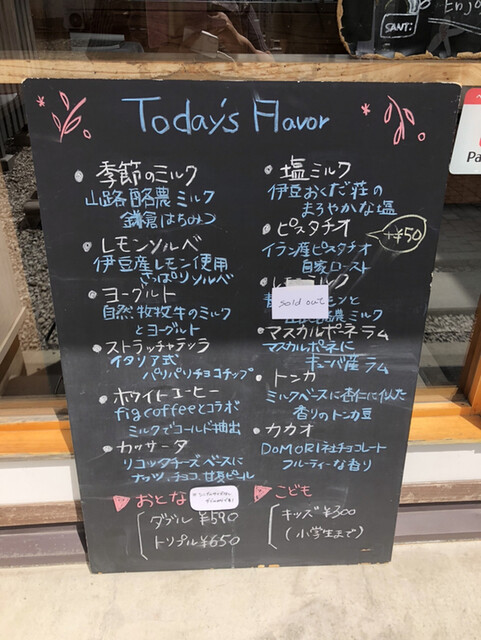 Enjo
SANT:
Pa
Today's Flavor
・季節のミルク
山路酪農ミルク
鎌倉はちみつ
・レモンソルベ
伊豆産レモン使用
さっぱりソルベ
・ヨーグルト
自然牧牧牛のミルク
とヨーグルト
・ストラッチャテッラ
イタリア式
パリパリチョコチップ
・ホワイトコーヒー
figcoffeeとコラボ
ミルクでコールド抽出
・カッサータ
リコッタチーズベースに
ナッツ、チョコ、甘夏ピール
・塩ミルク
伊豆おくだ荘の
まろやかな塩
・ピスタチオ
+¥50
イラン産ピスタチオ
自家ロースト
ミルク
sold out
ンと
酪農ミルク
・マスカルポーネラム
マスカルポーネに
キューバ産ラム
・トンカ
ミルクベースに杏仁に似た
香りのトンカ豆
・カカオ
DOMORI社チョコレート
フルーティーな香り
おとな
ダブル ¥590
トリプル ¥650
こども
キッズ ¥300
(小学生まで)